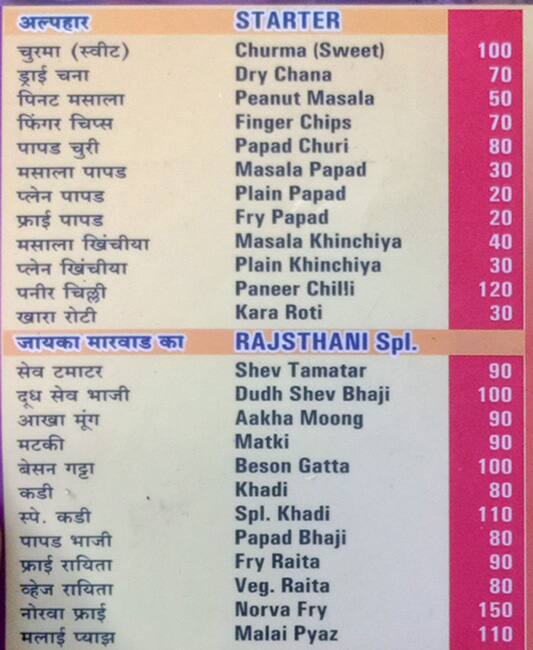 अल्पहार STARTER
चुरमा (स्वीट) Churma (Sweet) 100
ड्राई चना Dry Chana 70
पिनट मसाला Peanut Masala 50
फिंगर चिप्स Finger Chips 70
पापड चुरी Papad Churi 80
मसाला पापड Masala Papad 30
प्लेन पापड Plain Papad 20
फ्राई पापड Fry Papad 20
मसाला खिंचीया Masala Khinchiya 40
प्लेन खिंचीया Plain Khinchiya 30
पनीर चिल्ली Paneer Chilli 120
खारा रोटी Kara Roti 30
जांयका मारवाड का RAJSTHANI Spl.
सेव टमाटर Shev Tamatar 90
दूध सेव भाजी Dudh Shev Bhaji 100
आखा मूंग Aakha Moong 90
मटकी Matki 90
बेसन गट्टा Beson Gatta 100
कडी Khadi 80
स्पे. कडी Spl. Khadi 110
पापड भाजी Papad Bhaji 80
फ्राई रायिता Fry Raita 90
व्हेज रायिता Veg. Raita 80
नोरवा फ्राई Norva Fry 150
मलाई प्याझ Malai Pyaz 110